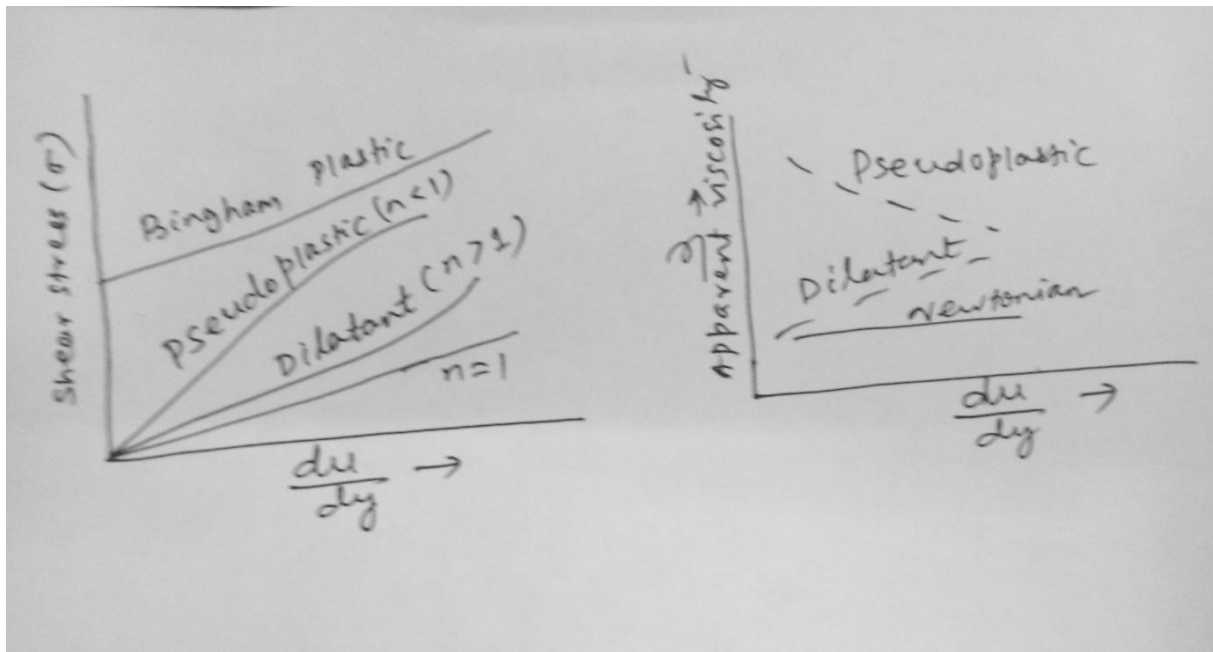 Shear stress (σ)
Bingham plastic
Pseudoplastic (n<1)
Dilatant (n>1)
n=1
du
dy
→
Apparent viscosity
η →
Pseudoplastic
Dilatant
Newtonian
du
dy
→